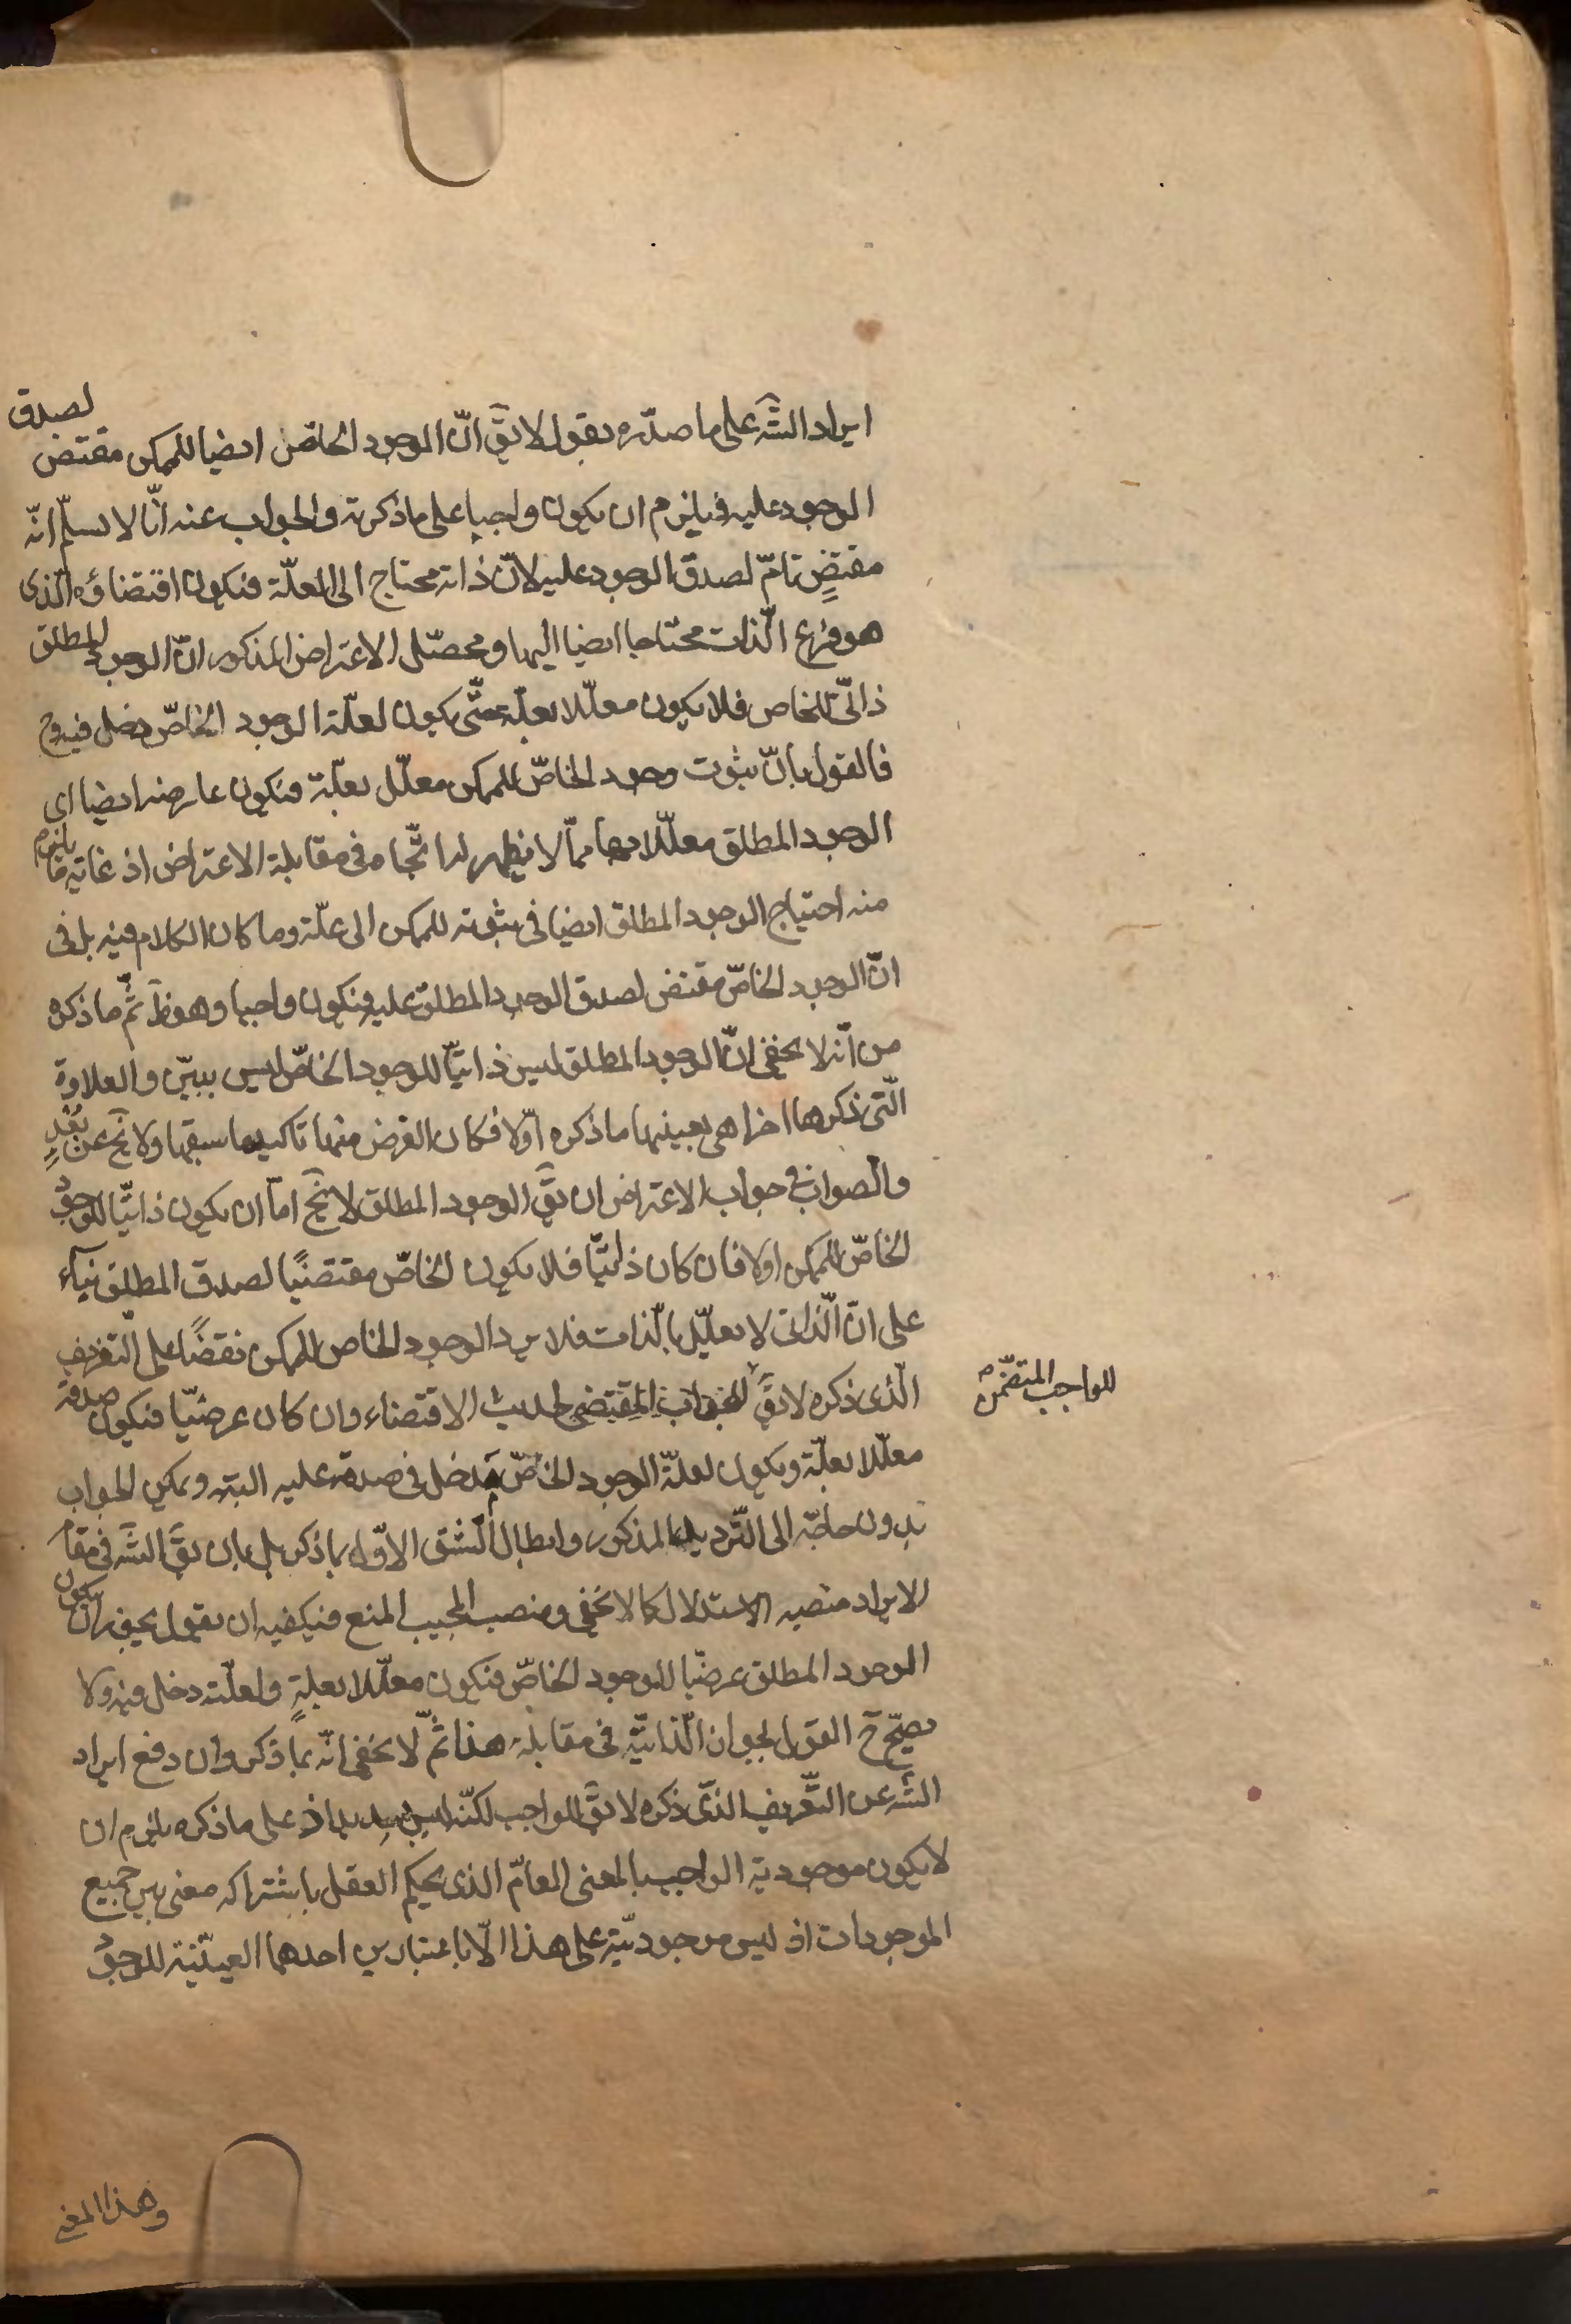 ايراد الشَّ على ما صدّره بقول لا يقَ انّ الوجود الخاصّ ايضا للممكن مقتض لصدق
الوجود عليه فيلزم ان يكون واجبا على ما ذكرته والجواب عنه انّا لا نسلّم انّه
مقتضٍ تامّ لصدق الوجود عليه لانّ ذاته محتاج الى العلّة فيكون اقتضاؤه الّذى
هو فرع الّذات محتاجا ايضا اليها ومحصّل الاعتراض المذكور انّ الوجود المطلق
ذاتىّ للخاص فلا يكون معلّلا بعلّة حتّى يكون لعلّة الوجود الخاصّ دخل فيه وح
فالقول بانّ ثبوت وجود الخاصّ للممكن معلّل بعلّة فيكون عارضه ايضا اى
الوجود المطلق معلّلا بها ممّا لا يظهر له اتّجاه فى مقابلة الاعتراض اذ غاية ما يلزم
منه احتياج الوجود المطلق ايضا فى ثبوته للممكن الى علّة وما كان الكلام فيه بل فى
انّ الوجود الخاصّ مقتض لصدق الوجود المطلق عليه فيكون واجبا وهو ظَ ثمّ ما ذكره
من انّه لا يخفى انّ الوجود المطلق ليس ذاتيّا للوجود الخاصّ ليس ببيّن والعلاوة
الّتى ذكرها اخرا هى بعينها ما ذكره اوّلا فكان الغرض منها تاكيد ما سبقها ولا يخَ عن بُعْدٍ
والصواب فى جواب الاعتراض ان يقَ الوجود المطلق لا يخَ امّا ان يكون ذاتيّا للوجود
الخاصّ للممكن اولا فان كان ذاتيّا فلا يكون الخاصّ مقتضيًا لصدق المطلق بناء
على انّ الّذاتى لا يعلّل بالّذات فلا يرد الوجود الخاص للممكن نقضًا على التعريف
الّذى ذكره لا يقَ للواجب المتضمّن لحديث الاقتضاء وان كان عرضيّا فيكون صدقه
للواجب المتضمّن
معلّلا بعلّة ويكون لعلّة الوجود الخاصّ مدخل فى صدقه عليه البتّه ويمكن الجواب
بدون حاجة الى التّرديد المذكور وابطال الشق الاوّل بما ذكر بل بان يقَ الشَّ فى مقام
الايراد منصبه الاستدلال كما لا يخفى ومنصب المجيب المنع فيكفيه ان يقول يجوز ان يكون
الوجود المطلق عرضيّا للوجود الخاصّ فيكون معلّلا بعلةٍ ولعلّته دخل فيه ولا
يصحّ ح القول بجواز الّذاتيّة فى مقابلة هذا ثمّ لا يخفى انّه بما ذكر وان دفع ايراد
الشَّ عن التّعريف الّذى ذكره لا يقَ للواجب لكنّه ليس بسديد اذ على ما ذكره يلزم ان
لا يكون موجودية الواجب بالمعنى العامّ الذى يحكم العقل باشتراكه معنى بين جميع
الموجودات اذ ليس موجوديّته على هذا الّا باعتبارين احدهما العينيّة للوجود
وهذا المعنى